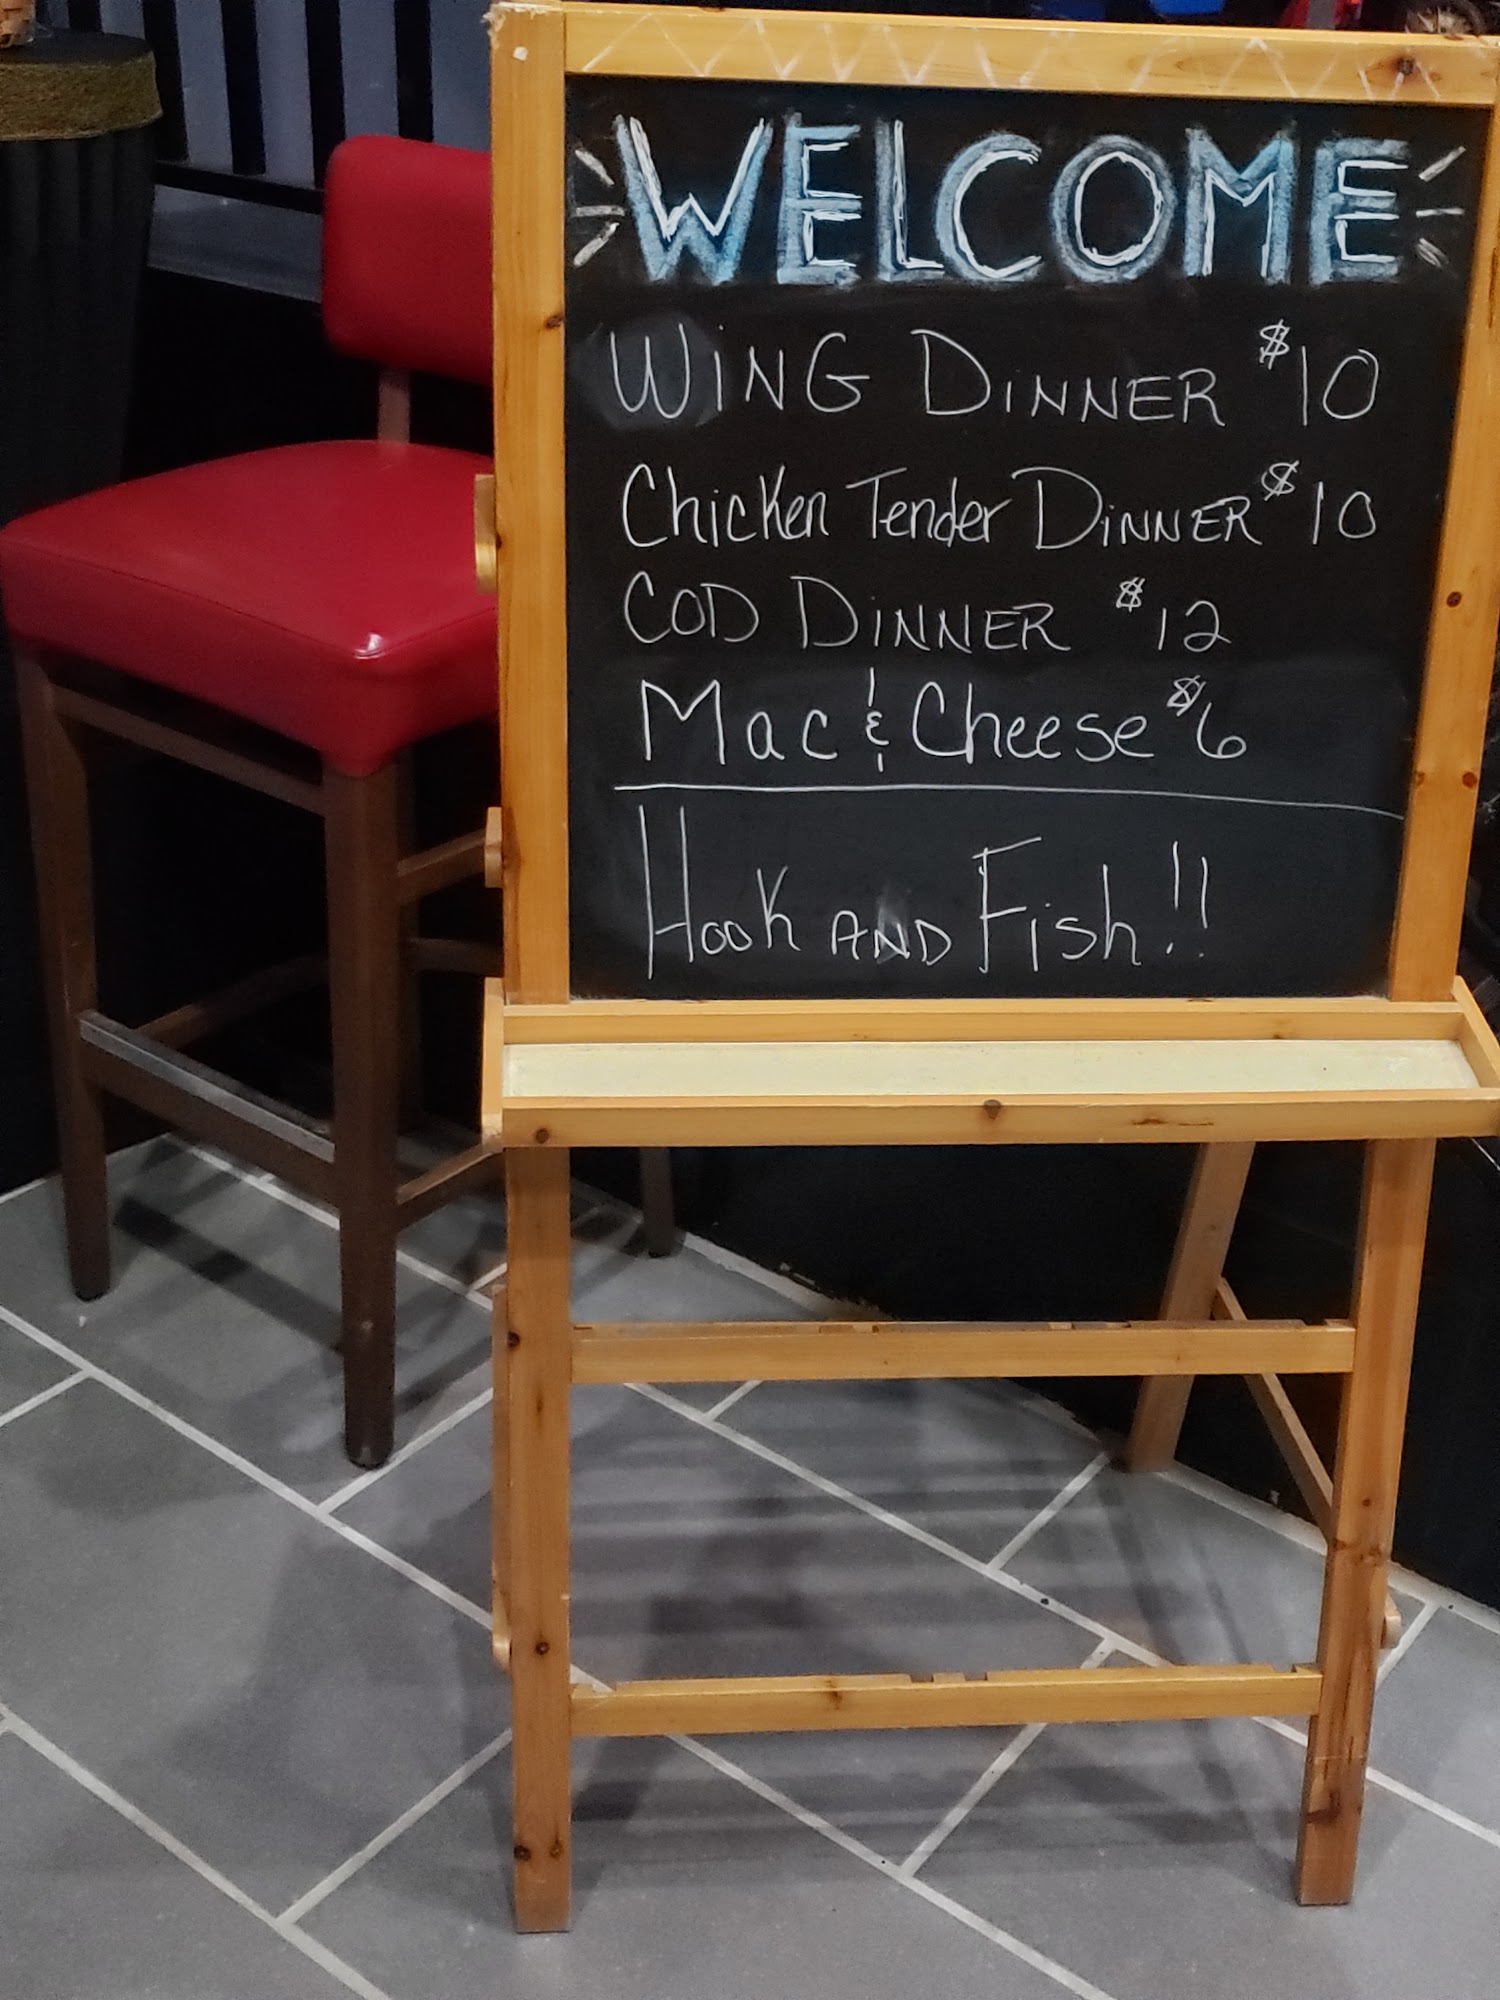 WELCOME
WiNG DiNNER $10
Chicken Tender DiNNER $10
COD DiNNER $12
Mac & Cheese $6
Hook AND Fish!!